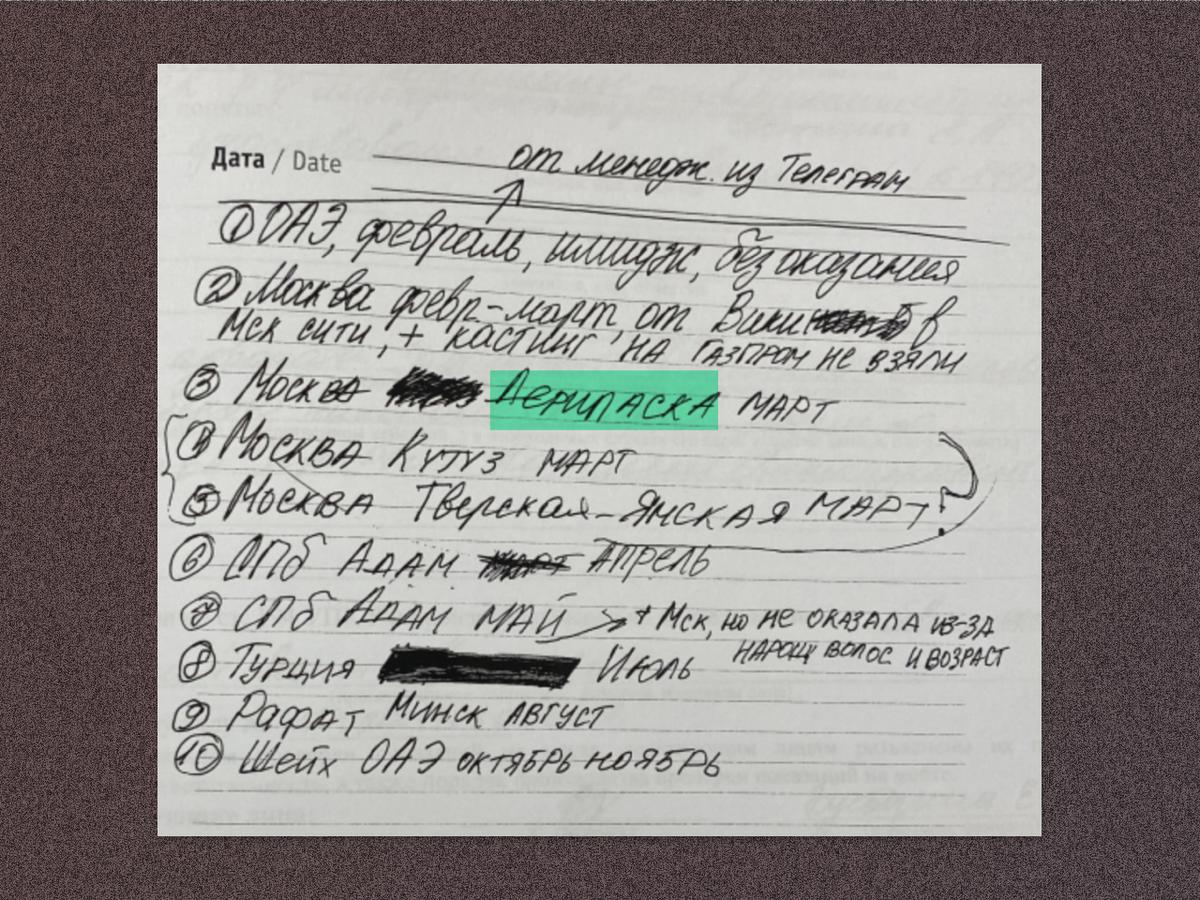 Дата / Date
от менедж. из Телеграм
① ОАЭ, февраль, имидж, без оказания
② Москва февр-март, от Вики в
Мск сити, + кастинг на Газпром не взяли
③ Москва Дерипаска март
④ Москва Кутуз март
⑤ Москва Тверская-Ямская март?
⑥ СПб Адам апрель
⑦ СПб Адам май → + Мск, но не оказала из-за
наращ волос и возраст
⑧ Турция Июль
⑨ Рафат Минск август
⑩ Шейх ОАЭ октябрь ноябрь